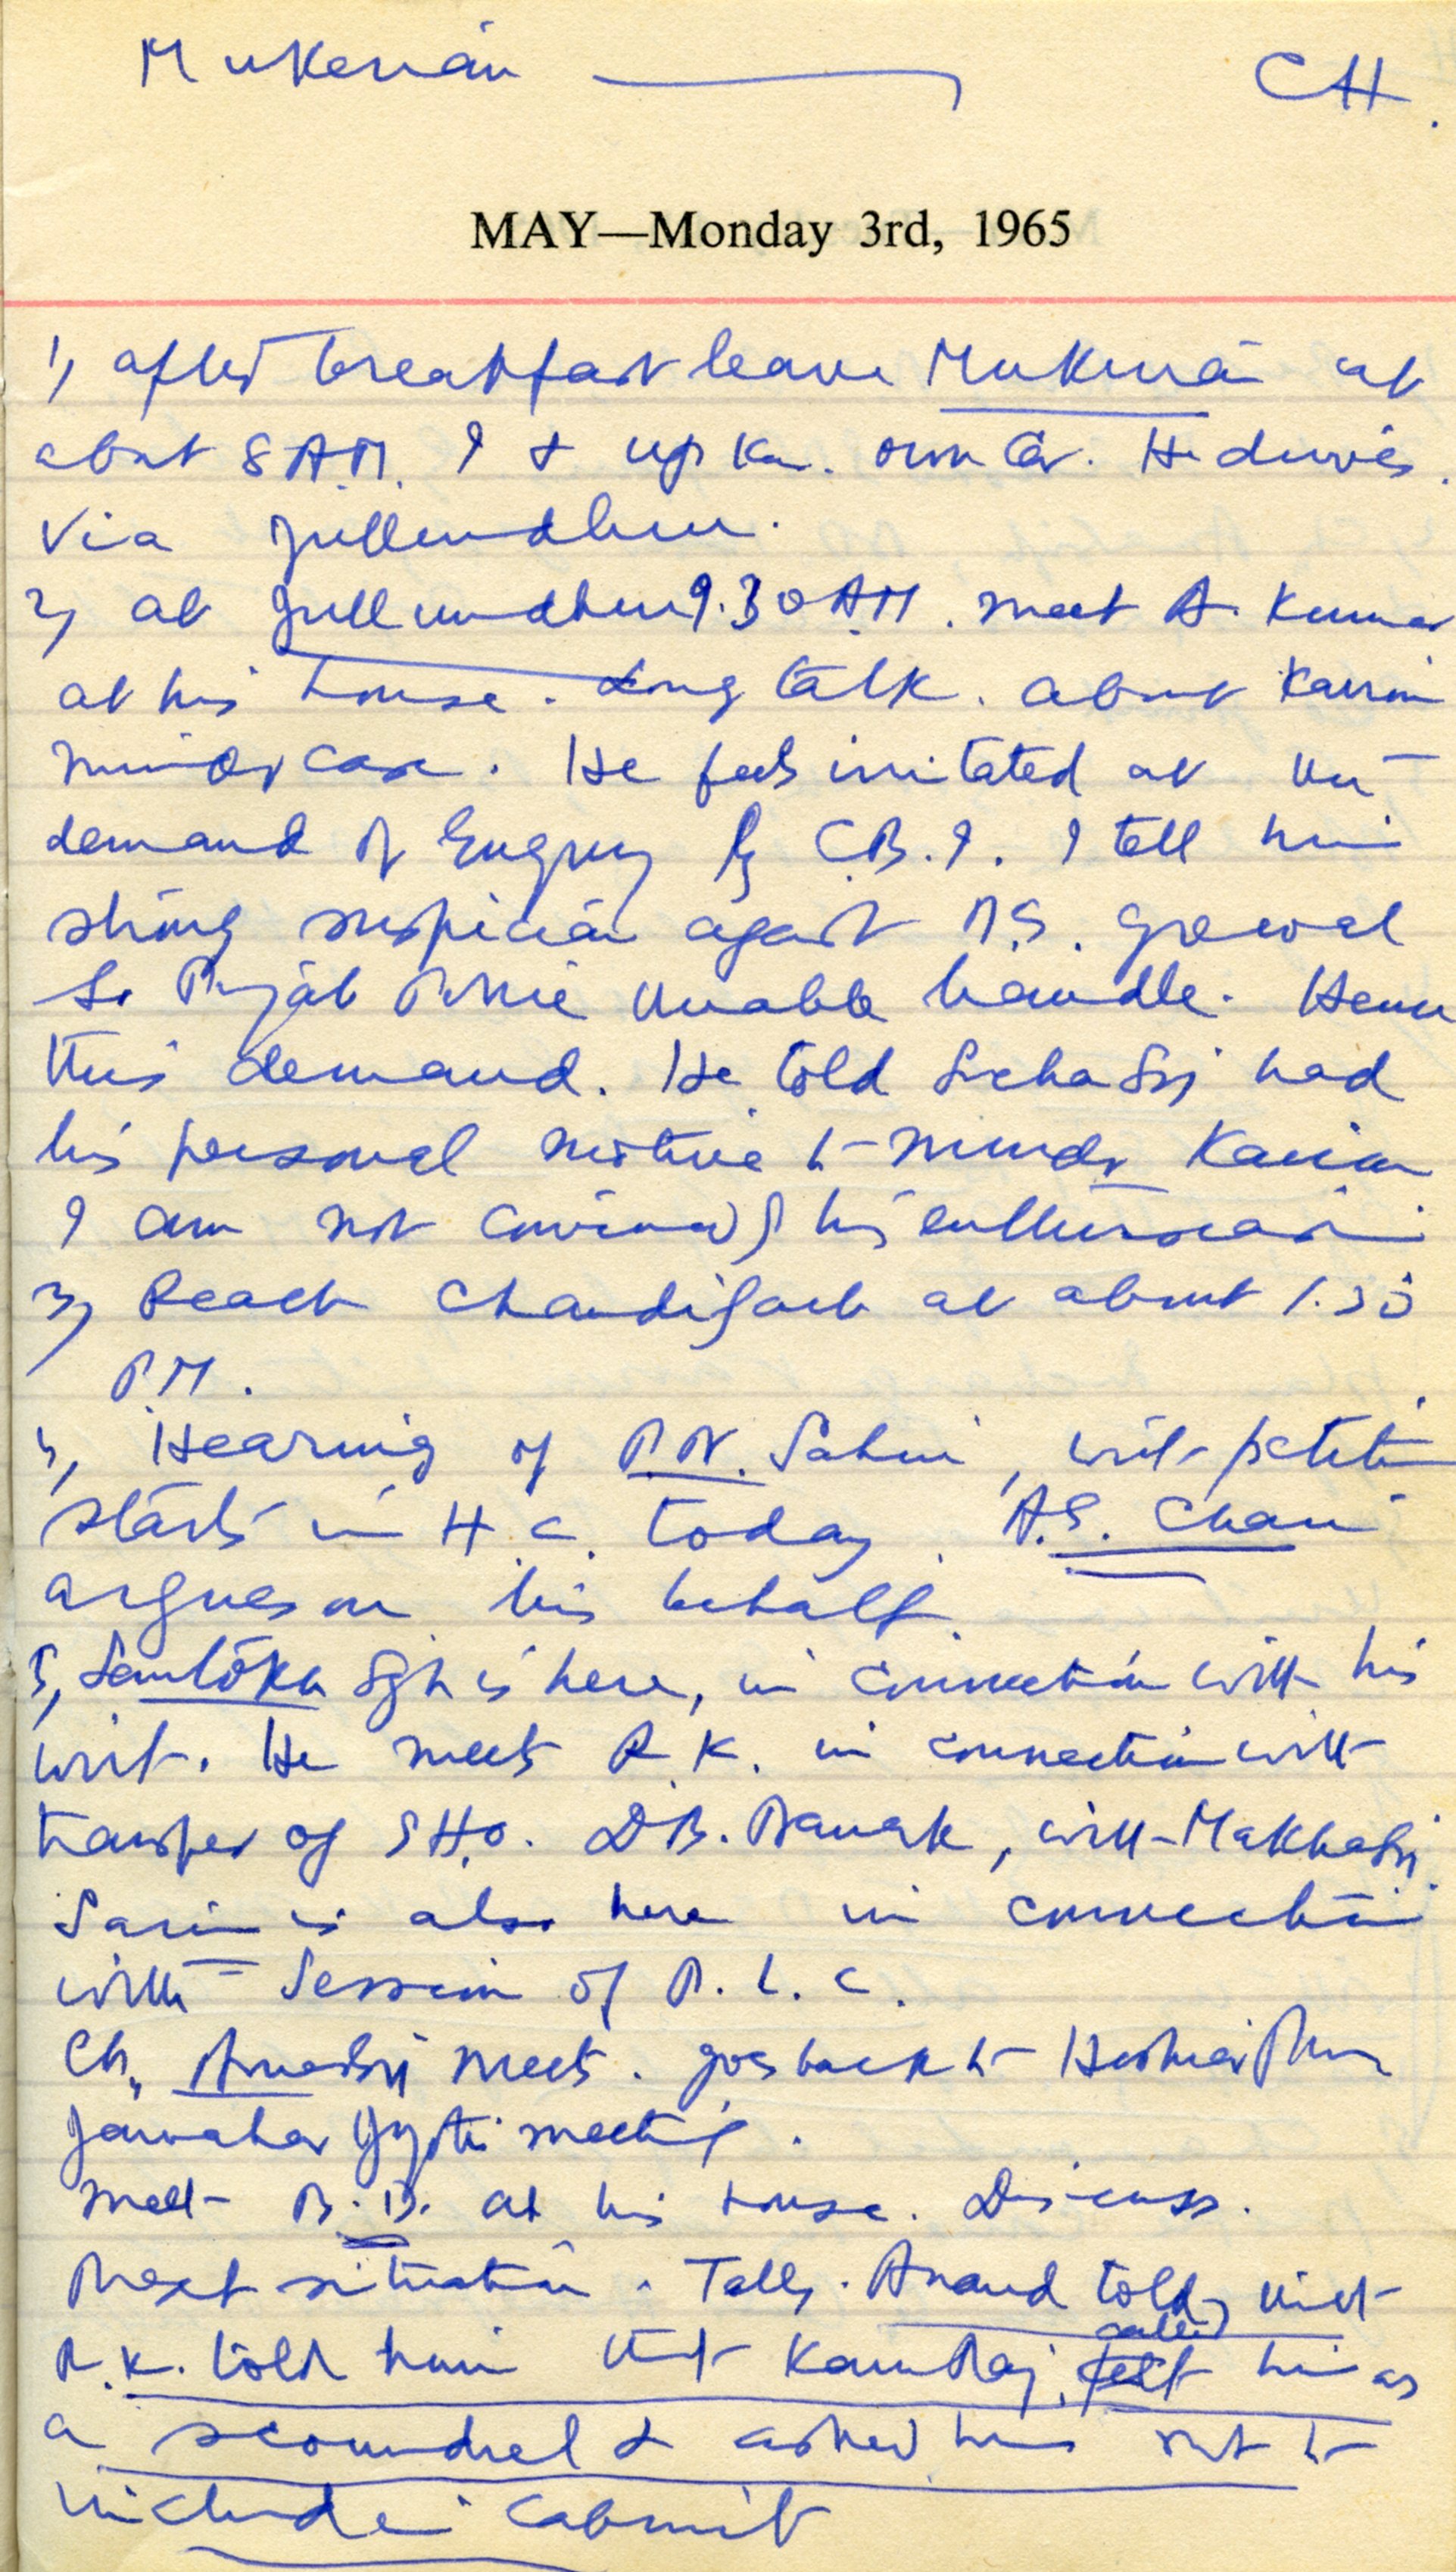 Mukerian CH.
MAY—Monday 3rd, 1965
1, after breakfast leave Mukerian at
about 8 A.M. I & own Car. He drives.
Via Jullundhur.
2, at Jullundhur 9.30 AM. meet A. Kumar
at his house. Long talk. about Kairon
murder case. He feels irritated at the
demand of Enquiry by C.B.I. I tell him
strong suspicion against D.S. Grewal
So Punjab Police unable handle. Hence
this demand. He told Sucha Sgj had
his personal motive to murder Kairon
I am not convinced of his enthusiasm
3, Reach Chandigarh at about 1.30
P.M.
4, Hearing of P.N. Sahni, writ petition
starts in H.C. today. A.S. Chari
argues on his behalf.
5, Santokh Sgh is here, in connection with his
writ. He meets R.K. in connection with
transfer of S.H.O. D.B. Nanak, with
Sarin is also here in connection
with Session of P.L.C.
Ch, meets. goes back to Hoshiarpur
Jawahar Jyoti meeting.
Meet B.D. at his house. Discuss.
Present situation. Tells. Anand told that
R.K. told him that Kamraj called him as
a scoundrel & asked him not to
include in Cabinet